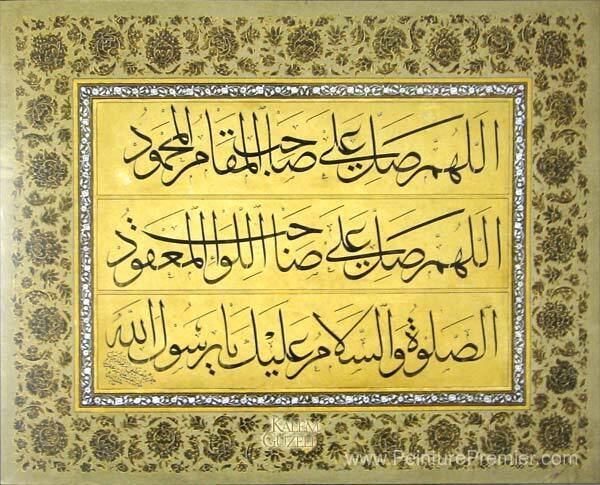 اللهم صل على صاحب المقام المحمود
اللهم صل على صاحب اللواء المعقود
الصلوة والسلام عليك يا رسول الله
KALEM
GÜZELİ
www.PeinturePremier.com